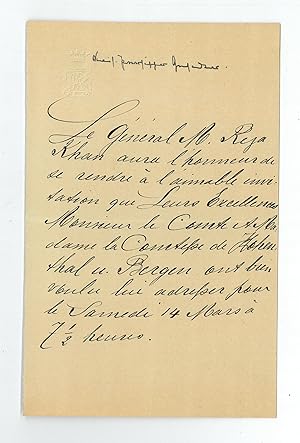 Le Général M. Reza
Khan aura l'honneur de
se rendre à l'aimable invi-
tation que Leurs Excellences
Monsieur le Comte & Ma
dame la Comtesse de Hohen
thal u. Bergen ont bien
voulu lui adresser pour
le Samedi 14 Mars à
7½ heures.